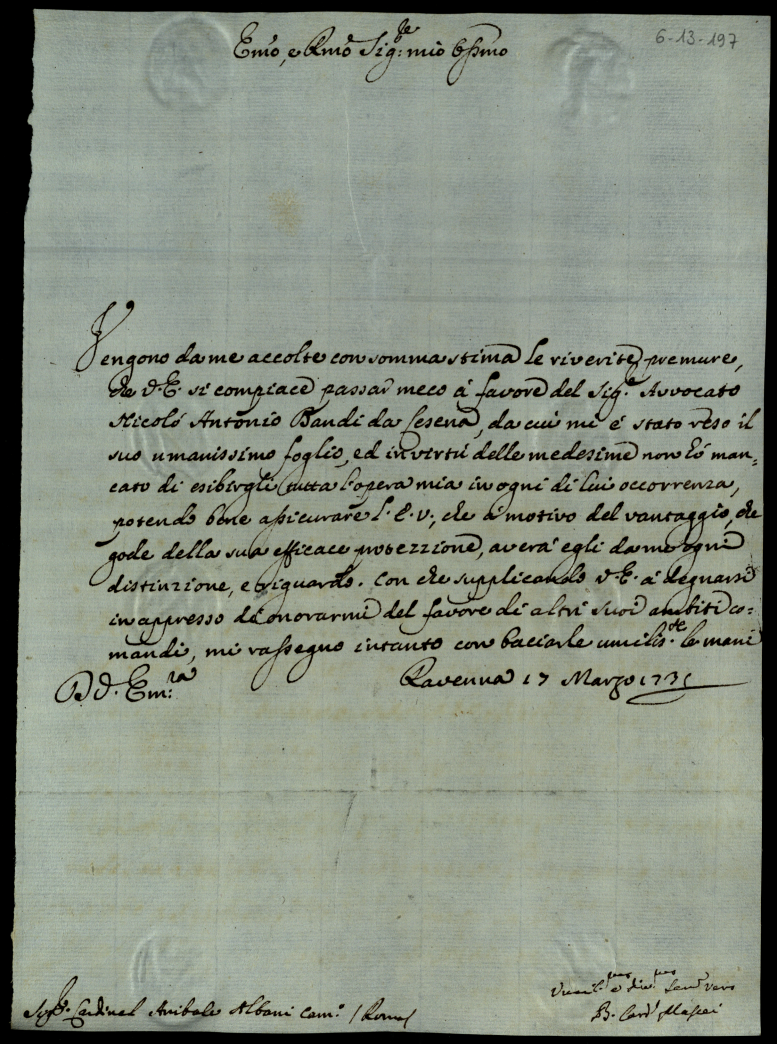 6-13-197
Emo, e Rmo Sig:re mio Ossmo
Vengono da me accolte con somma stima le riverite premure,
che V.E. si compiace passar meco á favore del Sig.r Avvocato
Nicoló Antonio Bandi da Cesena, da cui mi é stato reso il
suo umanissimo foglio, ed in virtú delle medesime non hó man=
cato di esibirgli tutta l'opera mia in ogni di lui occorrenza,
potendo bene assicurare l'E.V., che á motivo del vantaggio, che
gode della sua efficace protezzione, averá egli da me ogni
distinzione, e riguardo. Con che supplicando V.E. á degnarsi
in appresso di onorarmi del favore di altri suoi ambiti co=
mandi, mi rassegno intanto con baciarle umilis.te le mani
D V. Em:ra Ravenna 17 Marzo 1731
Sig.r Cardinal Anibale Albani Cam.o /Roma/
Umil.mo e div.mo Serv.r vero
B. Card.l Massei